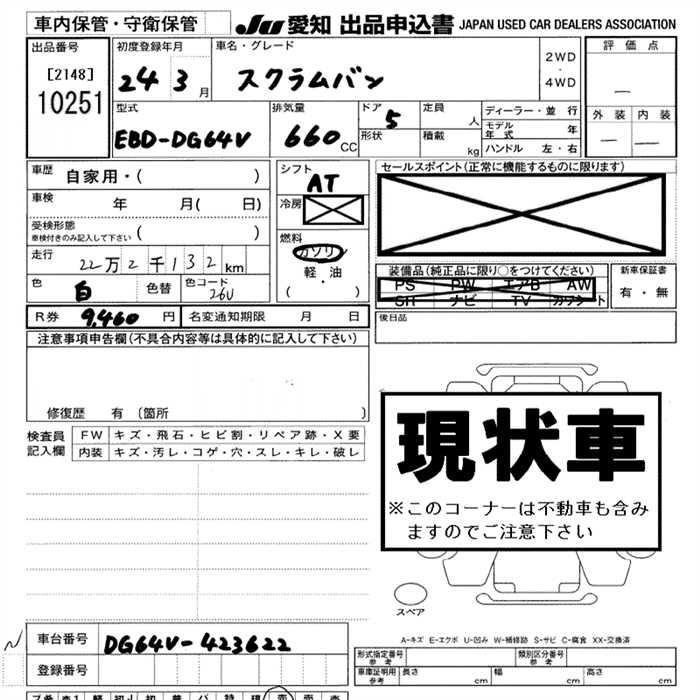 車内保管・守衛保管
JU 愛知 出品申込書 JAPAN USED CAR DEALERS ASSOCIATION
出品番号
[2148]
10251
初度登録年月
24 3 月
車名・グレード
スクラムバン
2WD
・
4WD
評価点
—
外装 内装
— —
型式
EBD-DG64V
排気量
660 CC
ドア 5
形状
定員 人
積載 kg
ディーラー・並行
モデル年式 年
ハンドル 左・右
車歴 自家用・( )
車検 年 月( 日)
受検形態
車検付きのみ記入して下さい ( )
走行 22万2千132 km
色 白 色替 色コード 26U
シフト
AT
冷房
燃料
ガソリン
軽・油
( )
セールスポイント(正常に機能するものに限ります)
装備品(純正品に限り○をつけてください)
PS PW エアB AW
SR ナビ TV カワシート
新車保証書
有・無
R券 9,460 円 名変通知期限 月 日
後日品
注意事項申告欄(不具合内容等は具体的に記入して下さい)
修復歴 有 (箇所 )
検査員
記入欄
FW キズ・飛石・ヒビ割・リペア跡・X要
内装 キズ・汚レ・コゲ・穴・スレ・キレ・破レ
現状車
※このコーナーは不動車も含み
ますのでご注意下さい
スペア
A-キズ E-エクボ U-凹み W-補修跡 S-サビ C-腐食 XX-交換済
車台番号 DG64V-423622
登録番号
形式指定番号
参考
類別区分番号
参考
車庫証明用
参考
長さ cm 幅 cm 高さ cm